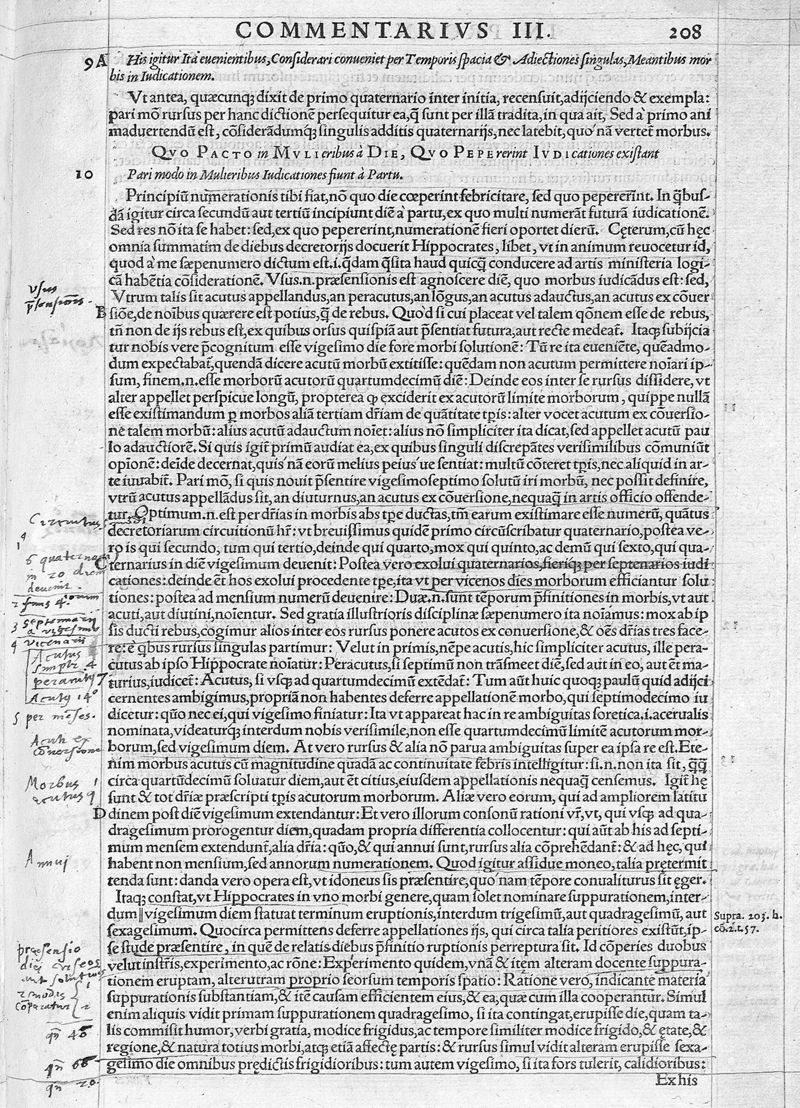 COMMENTARIVS III. 208
9 A His igitur Ità euenientibus, Considerari conueniet per Temporis spacia & Adiectiones singulas, Meantibus mor
bis in Iudicationem.
Vt antea, quæcunq; dixit de primo quaternario inter initia, recensuit, adijciendo & exempla:
pari mō rursus per hanc dictionē persequitur ea, q̄ sunt per illā tradita, in qua ait, Sed à primo ani
maduertendū est, cōsiderādumq; singulis additis quaternarijs, nec latebit, quo'nā vertet morbus.
QVO PACTO in MVLIeribus à DIE, QVO PEPErerint IVDIcationes existant
10 Pari modo in Mulieribus Iudicationes fiunt à Partu.
Principiū numerationis tibi fiat, nō quo die cœperint febricitare, sed quo pepererint. In q̄bus-
dā igitur circa secundū aut tertiū incipiunt diē à partu, ex quo multi numerāt futurā iudicationē.
Sed res nō ita se habet: sed, ex quo pepererint, numerationē fieri oportet dierū. Cęterum, cū hęc
omnia summatim de diebus decretorijs docuerit Hippocrates, libet, vt in animum reuocetur id,
quod à me sæpenumero dictum est .i. q̄dam q̄sita haud quicq̄ conducere ad artis ministeria logi-
cā habētia cōsiderationē. Vsus .n. præsensionis est agnoscere diē, quo morbus iudicādus est: sed,
Vtrum talis sit acutus appellandus, an peracutus, an lōgus, an acutus adauctus, an acutus ex cōuer
B siōe, de noībus quærere est potius, q̄ de rebus. Quo'd si cui placeat vel talem qōnem esse de rebus,
tn̄ non de ijs rebus est, ex quibus orsus quispiā aut p̄sentiat futura, aut recte medeat̄. Itaq; subijcia
tur nobis vere p̄cognitum esse vigesimo die fore morbi solutionē: Tū re ita eueniēte, quēadmo-
dum expectabat̄, quendā dicere acutū morbū extitisse: quēdam non acutum permittere noīari ip-
sum, finem .n. esse morborū acutorū quartumdecimū diē: Deinde eos inter se rursus dissidere, vt
alter appellet perspicue longū, propterea q exciderit ex acutorū limite morborum, quippe nullā
esse existimandum p morbos aliā tertiam dr̄iam de quātitate tp̄is: alter vocet acutum ex cōuersio-
ne talem morbū: alius acutū adauctum noīet: alius nō simpliciter ita dicat, sed appellet acutū pau
lo adauctiorē. Si quis igit̄ primū audiat ea, ex quibus singuli discrepātes verisimilibus cōmuniūt
opīonē: deīde decernat, quis'nā eorū melius peius'ue sentiat: multū cōteret tp̄is, nec aliquid in ar-
te iuuabit̄. Pari mō, si quis nouit p̄sentire vigesimoseptimo solutū iri morbū, nec possit definire,
vtrū acutus appellādus sit, an diuturnus, an acutus ex cōuersione, nequaq̄ in artis officio offende-
tur. Optimum .n. est per dr̄ias in morbis abs tp̄e ductas, tm̄ earum existimare esse numerū, quātus
decretoriarum circuitionū hr̄: vt breuissimus quidē primo circūscribatur quaternario, postea ve-
ro is qui secundo, tum qui tertio, deinde qui quarto, mox qui quinto, ac demū qui sexto, qui qua-
C ternarius in diē vigesimum deuenit: Postea vero exolui quaternarios, fieriq; per septenarios iudi
cationes: deinde ēt hos exolui procedente tp̄e, ita vt per vicenos dies morborum efficiantur solu
tiones: postea ad mensium numerū deuenire: Duæ .n. sunt tēporum p̄finitiones in morbis, vt aut
acuti, aut diutini, noīentur. Sed gratia illustrioris disciplinæ sæpenumero ita noīamus: mox ab ip
sis ducti rebus, cogimur alios inter eos rursus ponere acutos ex conuersione, & oēs dr̄ias tres face-
re: è q̄bus rursus singulas partimur: Velut in primis, nēpe acutis, hic simpliciter acutus, ille pera-
cutus ab ipso Hippocrate noīatur: Peracutus, si septimū non trāsmeet diē, sed aut in eo, aut ēt ma-
turius, iudicet̄: Acutus, si vsq; ad quartumdecimū extēdat̄: Tum aūt huic quoq; paulū quid adijci
cernentes ambigimus, propriā non habentes deferre appellationē morbo, qui septimodecimo iu
dicetur: quō nec ei, qui vigesimo finiatur: Ita vt appareat hac in re ambiguitas soretica .i. aceruális
nominata, videaturq; interdum nobis verisimile, non esse quartumdecimū limitē acutorum mor-
borum, sed vigesimum diem. At vero rursus & alia nō parua ambiguitas super ea ipsa re est. Ete-
nim morbus acutus cū magnitudine quadā ac continuitate febris intelligitur: si .n. non ita sit, q̄q̄
circa quartūdecimū soluatur diem, aut ēt citius, eiusdem appellationis nequaq̄ censemus. Igit̄ hę
sunt & tot dr̄iæ præscripti tp̄is acutorum morborum. Aliæ vero eorum, qui ad ampliorem latitu
D dinem post diē vigesimum extendantur: Et vero illorum consonū rationi vr̄, vt, qui vsq; ad qua-
dragesimum prorogentur diem, quadam propria differentia collocentur: qui aūt ab his ad septi-
mum mensem extendunt̄, alia dr̄ia: quō, & qui annui sunt, rursus alia cōprehēdant̄: & ad hęc, qui
habent non mensium, sed annorum numerationem. Quod igitur assidue moneo, talia pretermit
tenda sunt: danda vero opera est, vt idoneus sis præsentire, quo'nam tēpore conualiturus sit ęger.
Itaq; constat, vt Hippocrates in vno morbi genere, quam solet nominare suppurationem, inter-
dum vigesimum diem statuat terminum eruptionis, interdum trigesimū, aut quadragesimū, aut
sexagesimum. Quocirca permittens deferre appellationes ijs, qui circa talia peritiores existūt, ip-
se stude præsentire, in quē de relatis diebus p̄finitio ruptionis perreptura sit. Id cōperies duobus
velut instr̄is, experimento, ac rōne: Experimento quidem, vnā & itē̄m alteram docente suppura-
tionem eruptam, alterutram proprio seorsum temporis spatio: Ratione vero, indicante materiā
suppurationis substantiam, & itē causam efficientem eius, & ea, quæ cum illa cooperantur. Simul
enim aliquis vidit primam suppurationem quadragesimo, si ita contingat, erupisse die, quam ta-
lis commisit humor, verbi gratia, modice frigidus, ac tempore similiter modice frigido, & ętate, &
regione, & natura totius morbi, atq; etiā affectę partis: & rursus simul vidit alteram erupisse sexa-
gesimo die omnibus prędictis frigidioribus: tum autem vigesimo, si ita fors tulerit, calidioribus:
Ex his
Supra. 203. h.
cō. 2. t. 57.
vsus
p̄sensionis.
Circuitus
6 quaternarii
deuenit
3 septenarii
4 vicenarii
Acutus
simplr 4
peracutꝰ 7
Acutꝰ 14
5 per mēses.
Acutꝰ ex
cōuersione
Morbus
acutus
Annui
præsensio
2 modis